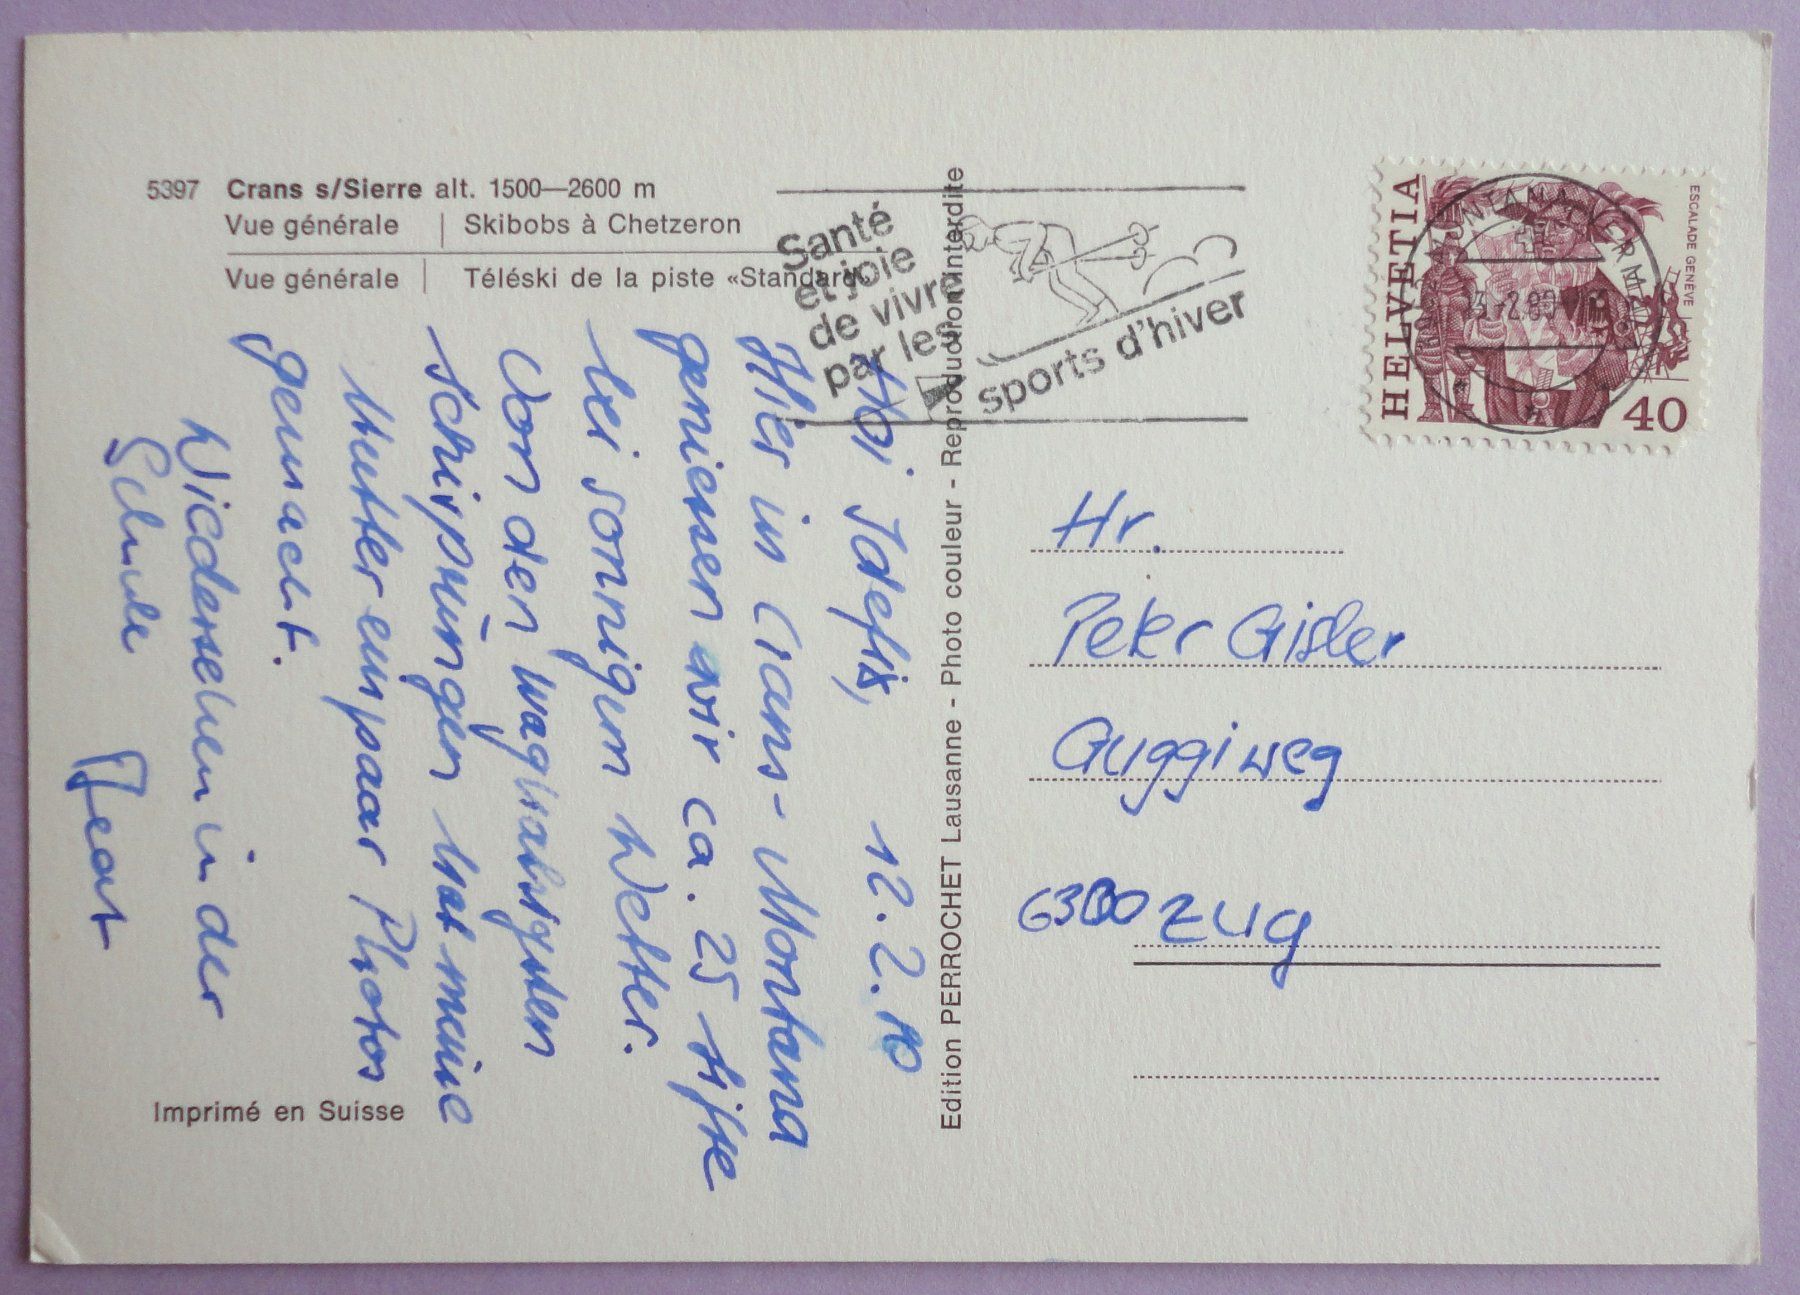 5397 Crans s/Sierre alt. 1500—2600 m
Vue générale | Skibobs à Chetzeron
Vue générale | Téléski de la piste «Standard»
Santé
et joie
de vivre
par les
sports d'hiver
HELVETIA
ESCALADE GENÈVE
40
13.-2.80
Hoi 12.2.80
Hier in Crans-Montana
geniessen wir ca. 25 Lifte
bei sonnigem Wetter.
Von den waghalsigsten
Schisprüngen hat meine
Mutter ein paar Photos
gemacht.
Wiedersehen in der
Schule Beat
Edition PERROCHET Lausanne - Photo couleur - Reproduction interdite
Hr.
Peter Gisler
Guggiweg
6300 Zug
Imprimé en Suisse